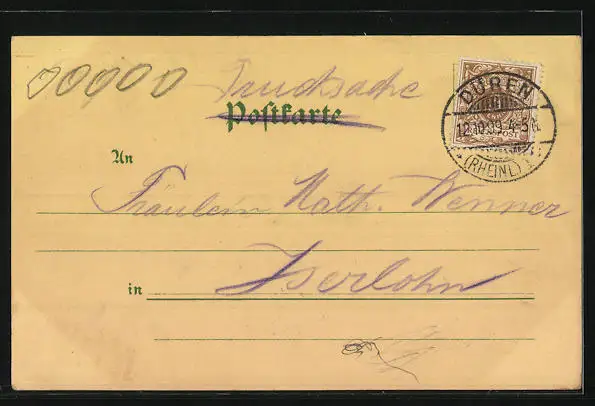 00000 Drucksache
Postkarte
DÜREN
12.10.99. 4-5N.
(RHEINL.)
An
Fräulein Math. Wenner
in Iserlohn